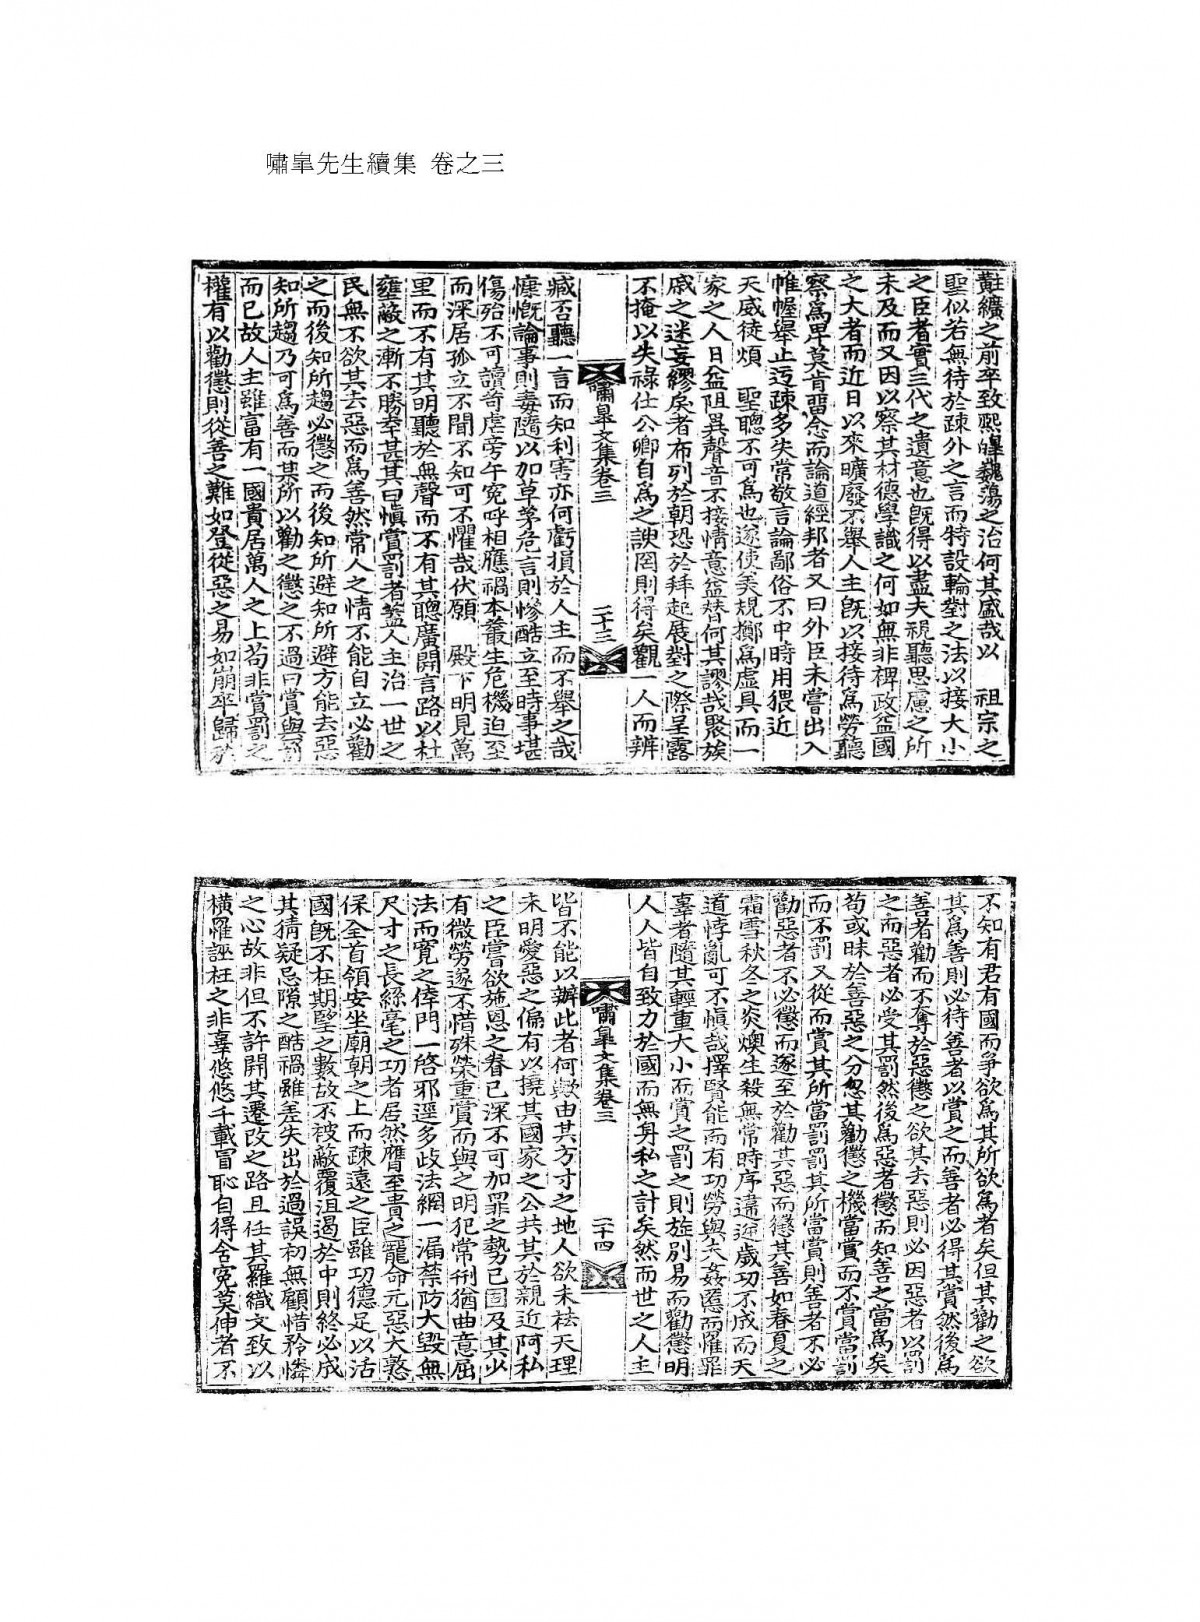 嘯皐先生續集 卷之三
黈纊之前卒致熙皥巍蕩之治何其盛哉以 祖宗之
聖似若無待於疎外之言而特設輪對之法以接大小
之臣者實三代之遺意也旣得以盡夫視聽思慮之所
未及而又因以察其材德學識之何如無非裨政益國
之大者而近日以來曠廢不舉人主旣以接待爲勞聽
察爲卑莫肯留念而論道經邦者又曰外臣未嘗出入
帷幄舉止迃疎多失常敬言論鄙俗不中時用猥近
天威徒煩 聖聰不可爲也遂使美規擲爲虛具而一
家之人日益阻異聲音不接情意益替何其謬哉聚族
戚之迷妄繆戾者布列於朝恐於拜起展對之際呈露
不掩以失祿仕公卿自爲之諛罔則得矣觀一人而辨
嘯皐文集卷三 二十三
臧否聽一言而知利害亦何虧損於人主而不舉之哉
慷慨論事則毒隨以加草茅危言則慘酷立至時事堪
傷殆不可讀苛虐旁午寃呼相應禍本叢生危機迫至
而深居孤立不聞不知可不懼哉伏願 殿下明見萬
里而不有其明聽於無聲而不有其聰廣開言路以杜
壅蔽之漸不勝幸甚其曰愼賞罰者蓋人主治一世之
民無不欲其去惡而爲善然常人之情不能自立必勸
之而後知所趨必懲之而後知所避知所避方能去惡
知所趨乃可爲善而其所以勸之懲之不過曰賞與罰
而已故人主雖富有一國貴居萬人之上苟非賞罰之
權有以勸懲則從善之難如登從惡之易如崩卒歸於
不知有君有國而爭欲爲其所欲爲者矣但其勸之欲
其爲善則必待善者以賞之而善者必得其賞然後爲
善者勸而不奪於惡懲之欲其去惡則必因惡者以罰
之而惡者必受其罰然後爲惡者懲而知善之當爲矣
苟或昧於善惡之分忽其勸懲之機當賞而不賞當罰
而不罰又從而賞其所當罰罰其所當賞則善者不必
勸惡者不必懲而遂至於勸其惡而懲其善如春夏之
霜雪秋冬之炎燠生殺無常時序違逆歲功不成而天
道悖亂可不愼哉擇賢能而有功勞與夫姦慝而罹罪
辜者隨其輕重大小而賞之罰之則旌別易而勸懲明
人人皆自致力於國而無身私之計矣然而世之人主
嘯皐文集卷三 二十四
皆不能以辦此者何歟由其方寸之地人欲未祛天理
未明愛惡之偏有以撓其國家之公共其於親近阿私
之臣嘗欲施恩之眷已深不可加罪之勢已固及其少
有微勞遂不惜殊榮重賞而與之明犯常刑猶曲意屈
法而寬之倖門一啓邪逕多歧法網一漏禁防大毀無
尺寸之長絲毫之功者居然膺至貴之寵命元惡大憝
保全首領安坐廟朝之上而疎遠之臣雖功德足以活
國旣不在期望之數故不被蔽覆沮遏於中則終必成
其猜疑忌隙之酷禍雖差失出於過誤初無顧惜矜憐
之心故非但不許開其遷改之路且任其羅織文致以
橫罹誣枉之非辜悠悠千載冒恥自得含寃莫伸者不